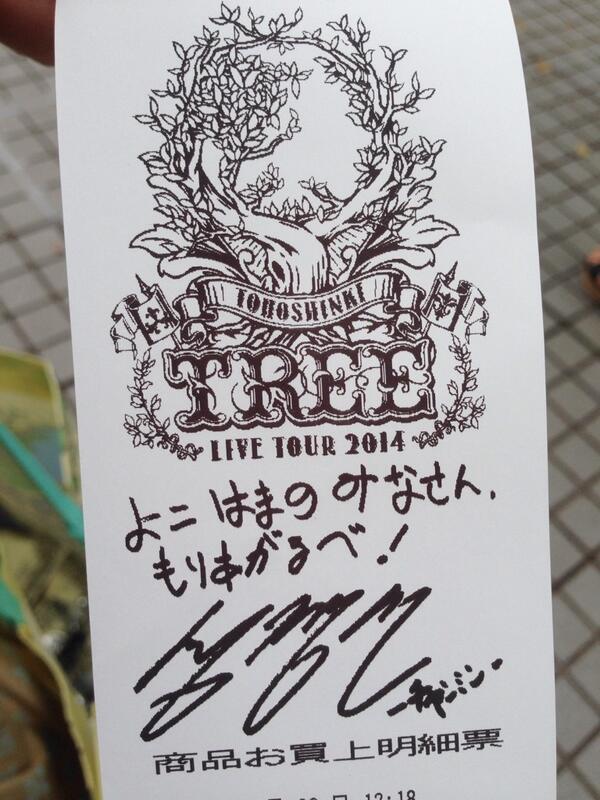 TOHOSHINKI
TREE
LIVE TOUR 2014
よこ はまの みなさん、
もりあがるべ！
-チャンミン-
商品お買上明細票
日 12:18